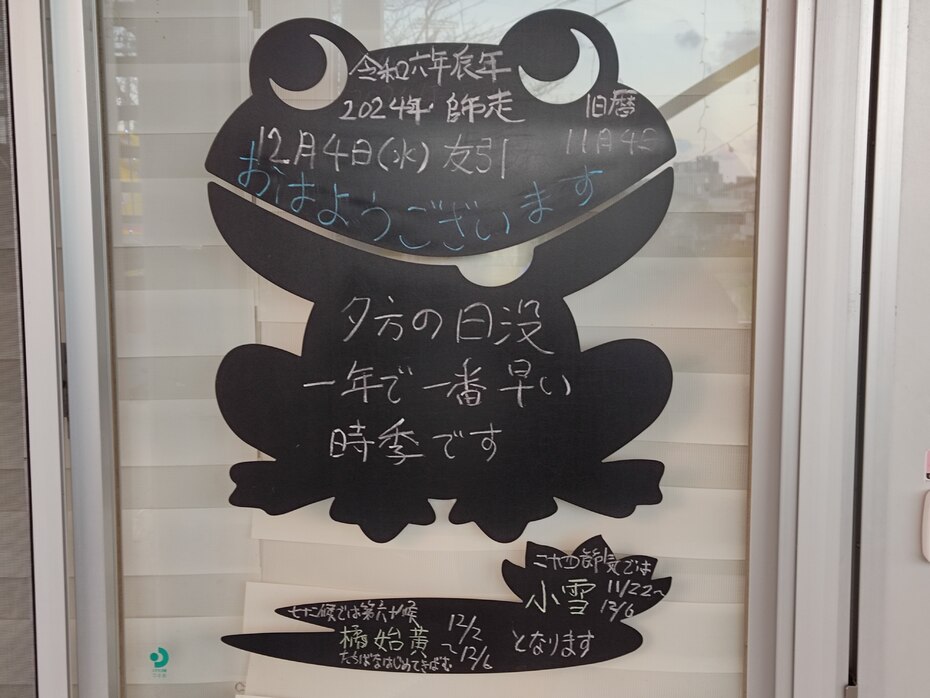 令和六年辰年
2024年 師走
旧暦
12月4日(水) 友引
11月4日
おはようございます
夕方の日没
一年で一番早い
時季です
二十四節気では
小雪 11/22~
12/6
七十二候では第六十候
橘始黄
たちばなはじめてきばむ
12/2
~12/6
となります